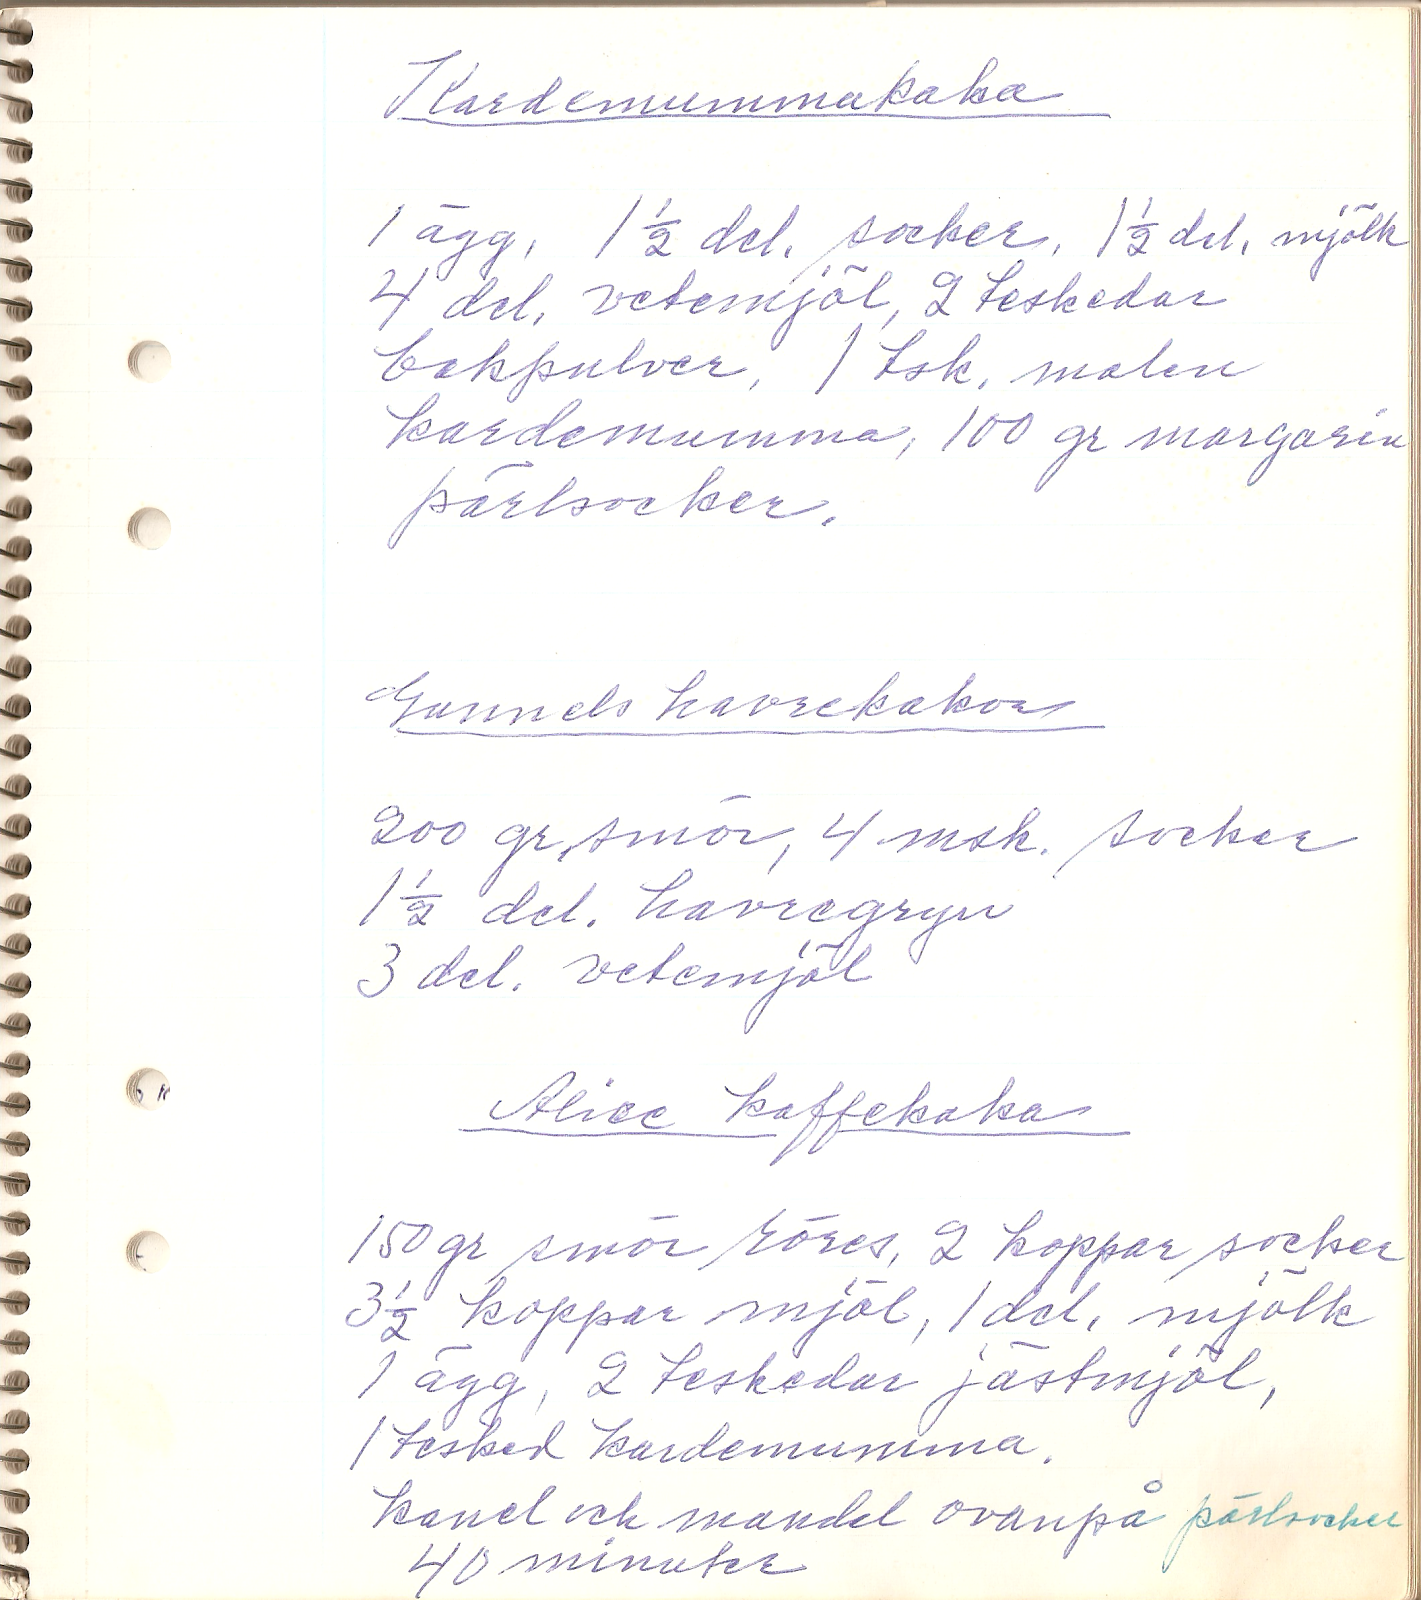 Kardemummakaka
1 ägg, 1 1/2 del. socker, 1 1/2 del. mjölk
4 del. vetemjöl, 2 teskedar
bakpulver, 1 tsk. malen
kardemumma, 100 gr margarin
pärlsocker.
Gunnels havrekakor
200 gr. smör, 4 msk. socker
1 1/2 del. havregryn
3 del. vetemjöl
Alice kaffekaka
150 gr smör röres, 2 koppar socker
3 1/2 koppar mjöl, 1 del. mjölk
1 ägg, 2 teskedar jästmjöl,
1 tesked kardemumma.
kanel och mandel ovanpå pärlsocker
40 minuter